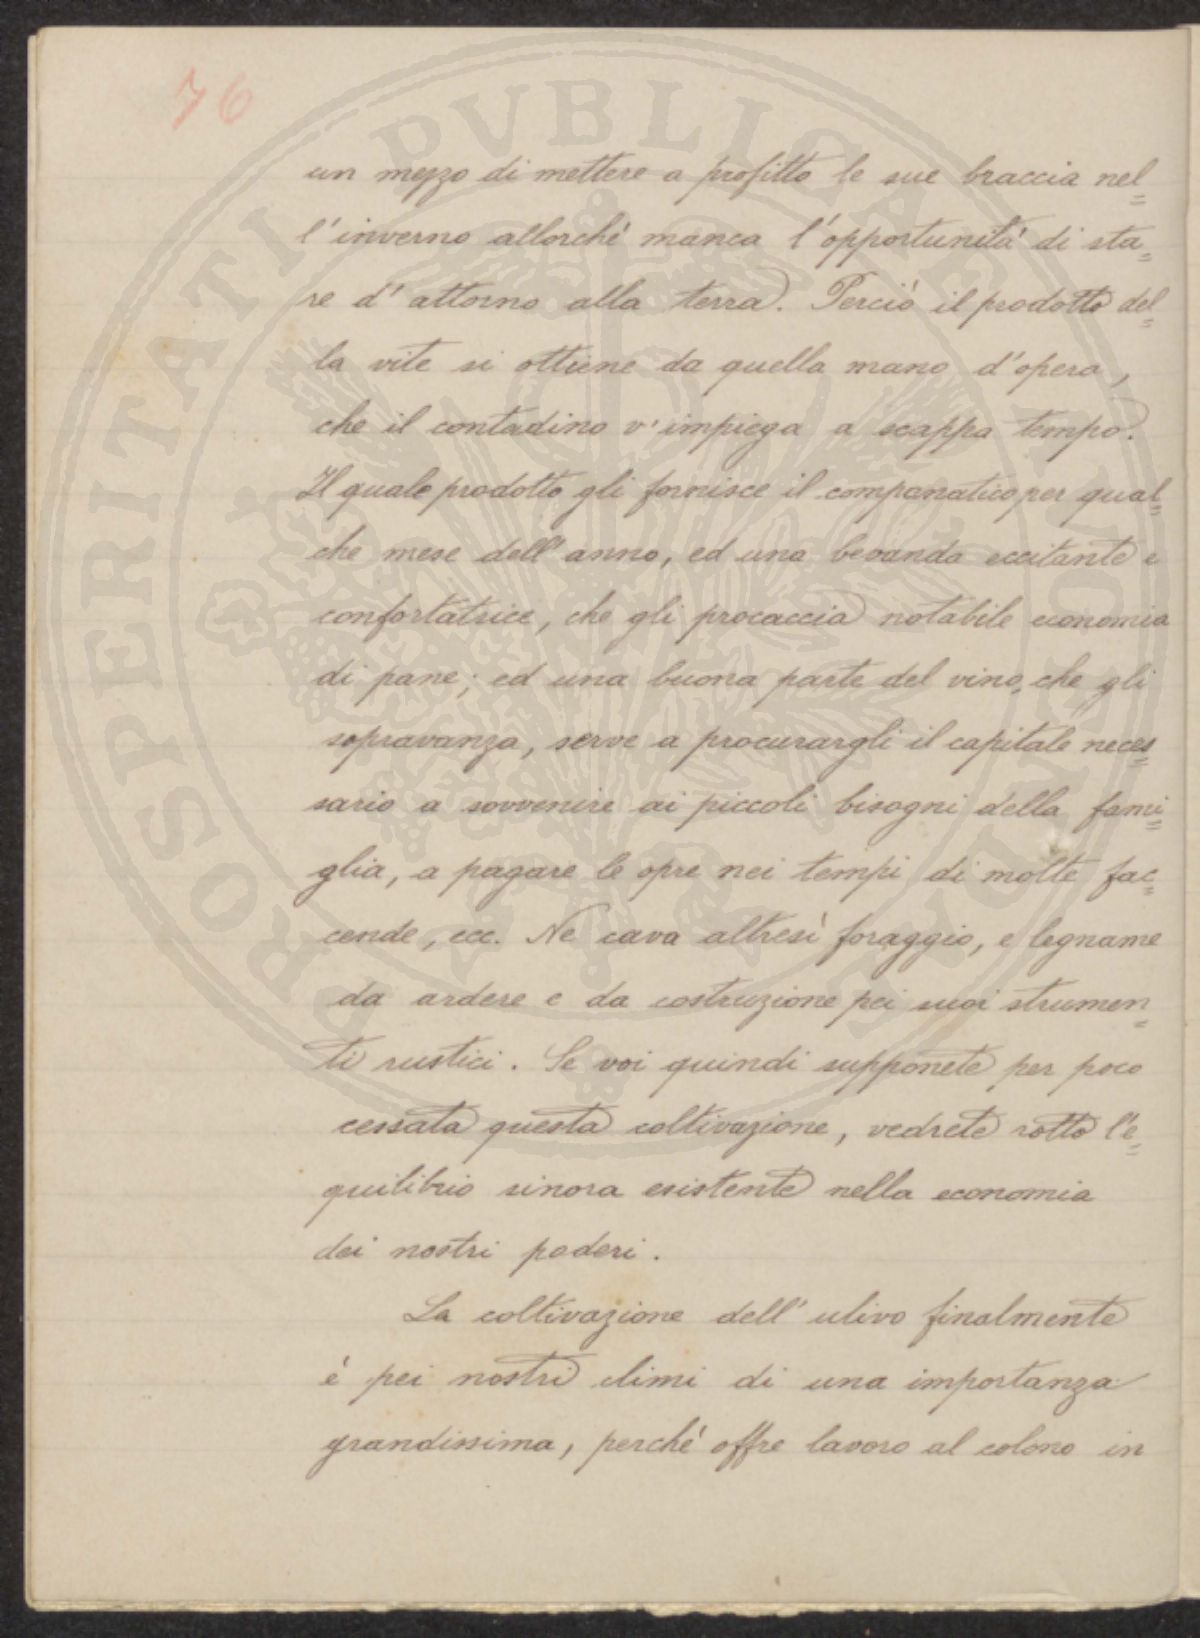 76
un mezzo di mettere a profitto le sue braccia nel=
l'inverno allorchè manca l'opportunità di sta=
re d'attorno alla terra. Perciò il prodotto del=
la vite si ottiene da quella mano d'opera,
che il contadino v'impiega a scappa tempo.
Il quale prodotto gli fornisce il companatico per qual=
che mese dell'anno, ed una bevanda eccitante e
confortatrice, che gli procaccia notabile economia
di pane; ed una buona parte del vino, che gli
sopravanza, serve a procurargli il capitale neces=
sario a sovvenire ai piccoli bisogni della fami=
glia, a pagare le opre nei tempi di molte fac=
cende, ecc. Ne cava altresì foraggio, e legname
da ardere e da costruzione pei suoi strumen=
ti rustici. Se voi quindi supponete per poco
cessata questa coltivazione, vedrete rotto l'e=
quilibrio sinora esistente nella economia
dei nostri poderi.
La coltivazione dell'ulivo finalmente
è pei nostri climi di una importanza
grandissima, perchè offre lavoro al colono in
PROSPERITATI PVBLICAE AVGENDAE